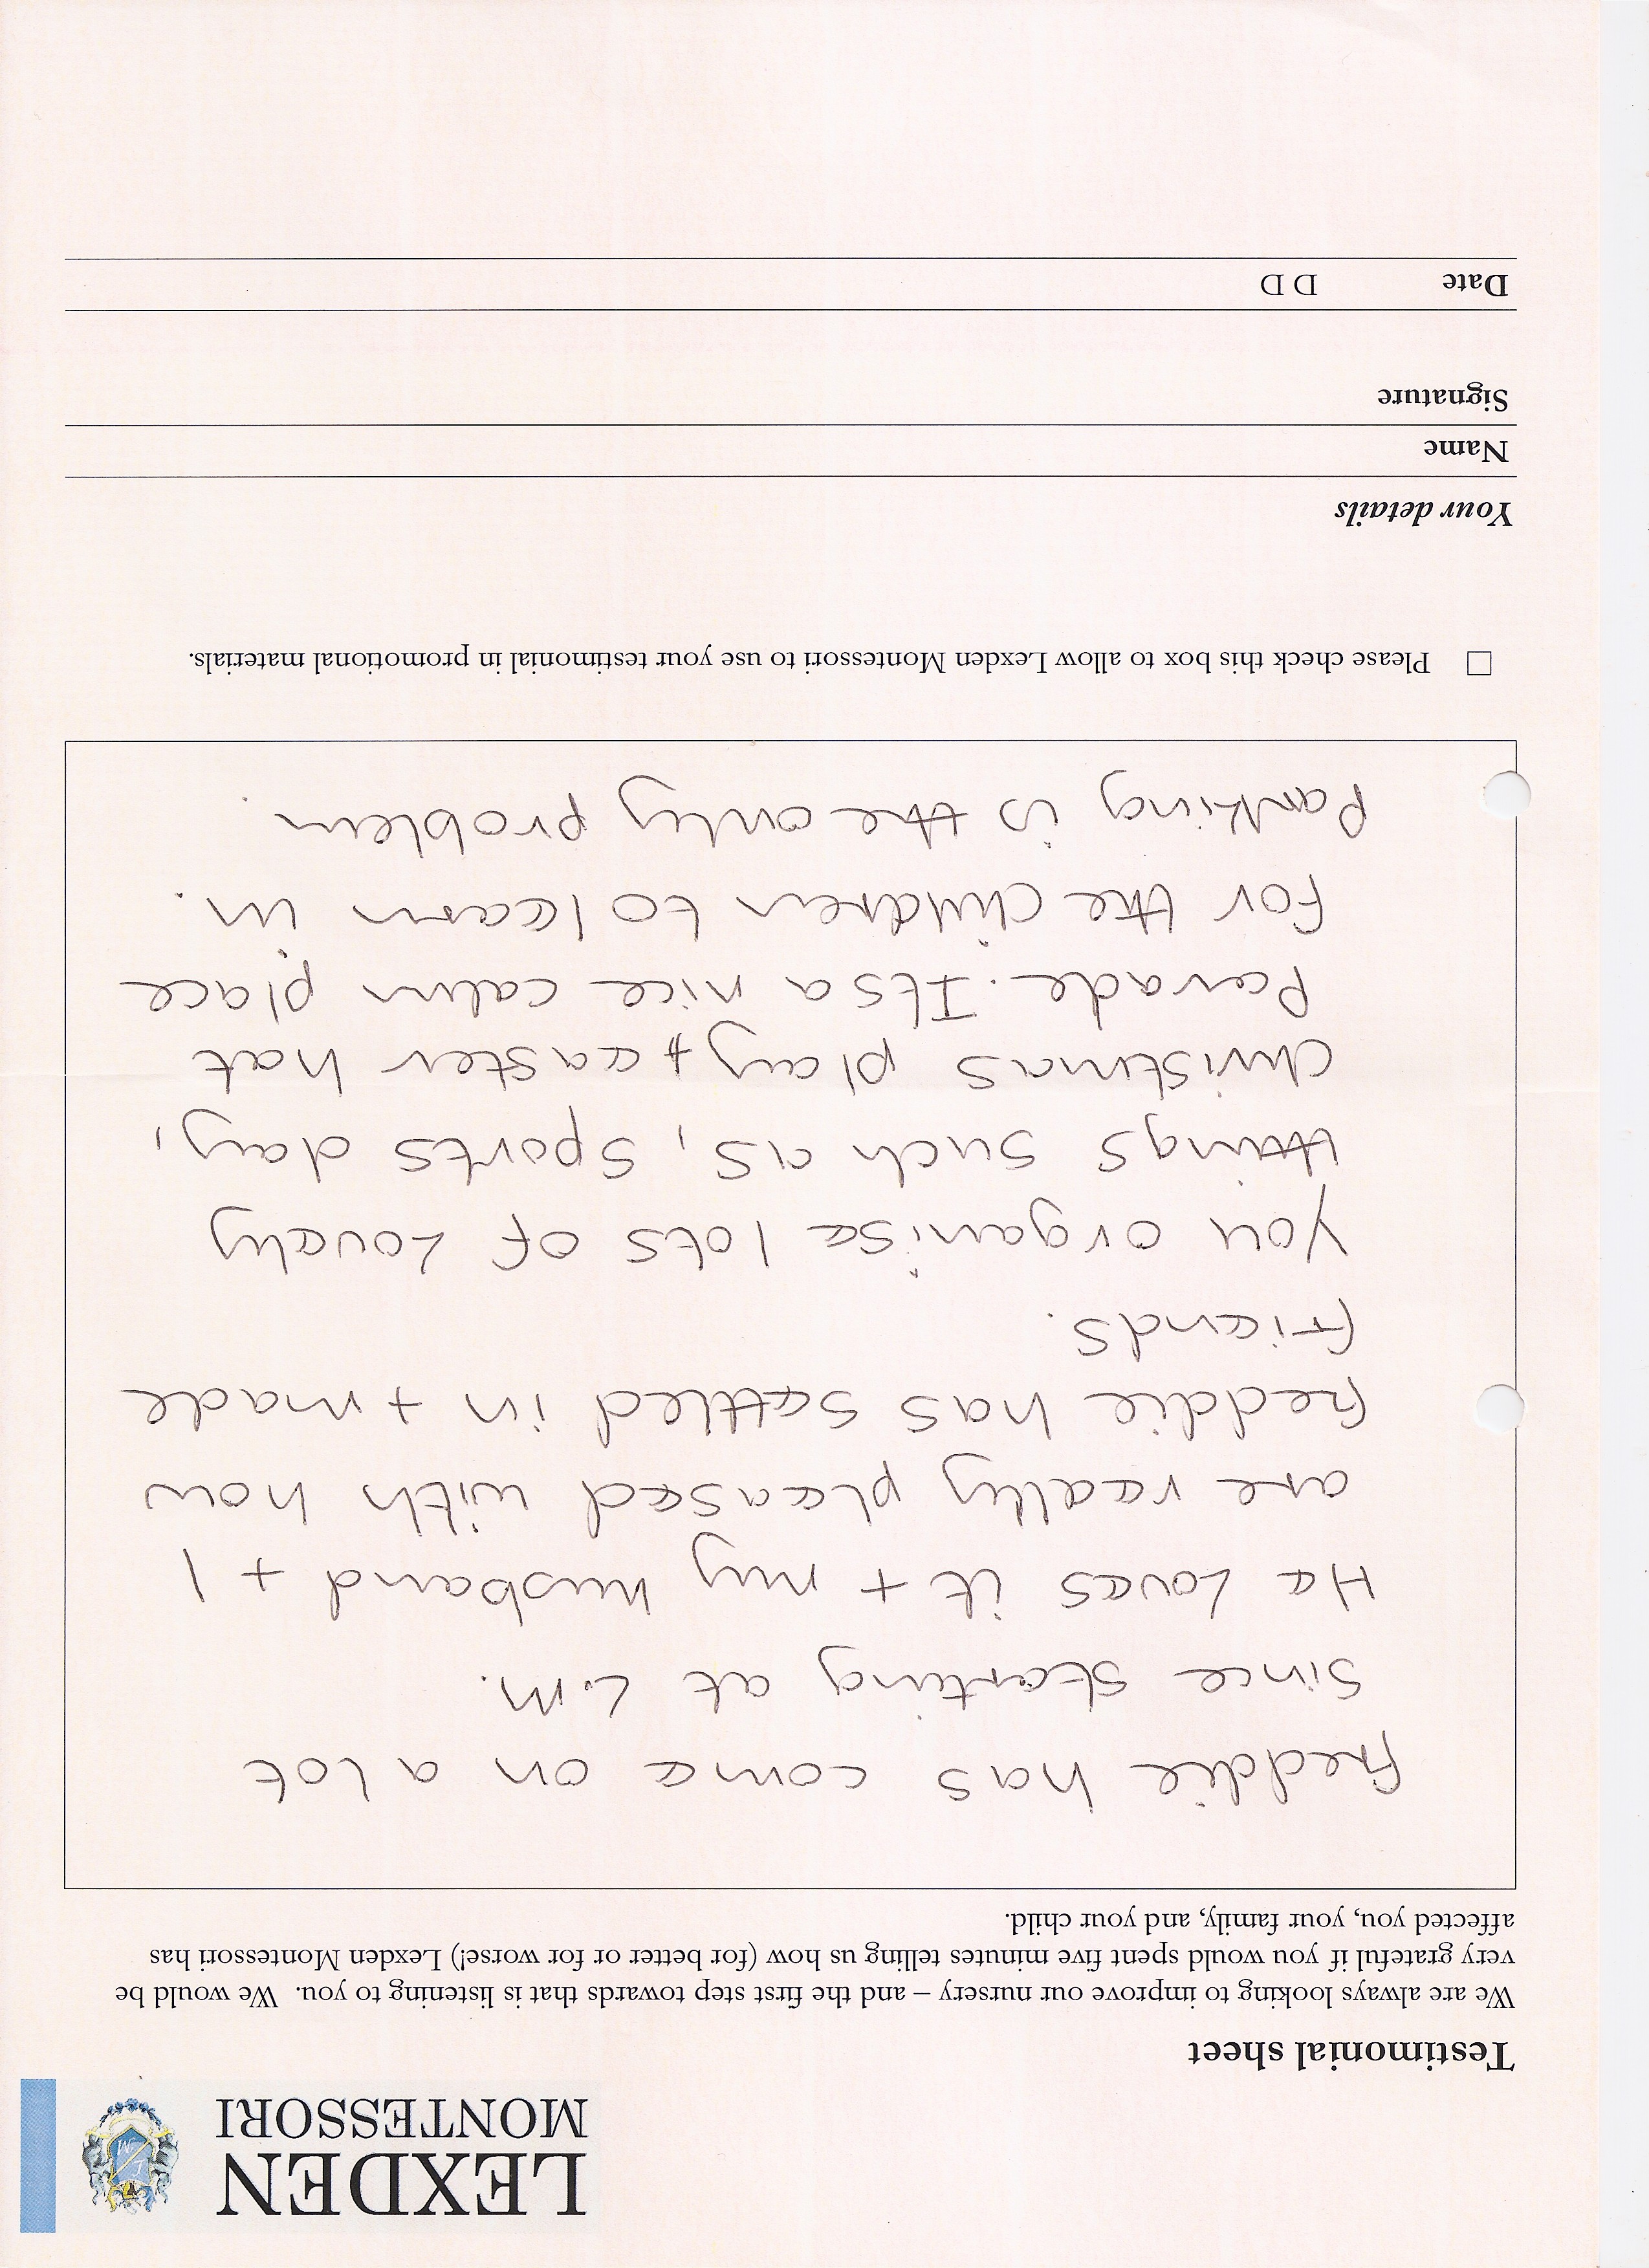 LEXDEN
MONTESSORI
Testimonial sheet
We are always looking to improve our nursery – and the first step towards that is listening to you. We would be
very grateful if you would spent five minutes telling us how (for better or for worse!) Lexden Montessori has
affected you, your family, and your child.
Freddie has come on a lot
since starting at L.M.
He Loves it + my husband + I
are really pleased with how
Freddie has settled in + made
friends.
You organise lots of Lovely
things such as, sports day,
christmas play + easter hat
Parade. Its a nice calm place
for the children to learn in.
Parking is the only problem.
☐ Please check this box to allow Lexden Montessori to use your testimonial in promotional materials.
Your details
Name
Signature
Date DD